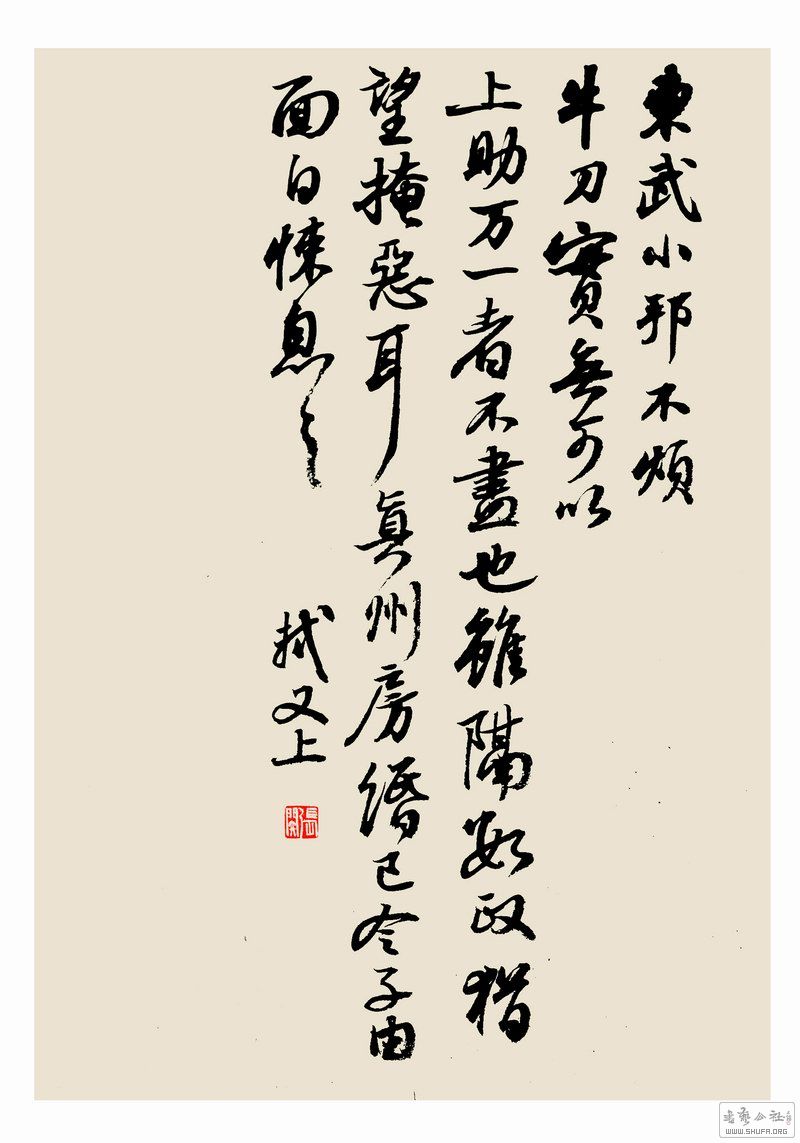 東武小邦不煩
牛刀實無可以
上助万一者不盡也雖隔數政猶
望掩惡耳真州房緡已令子由
面白悚息〻 軾又上
書藝公社
WWW.SHUFA.ORG